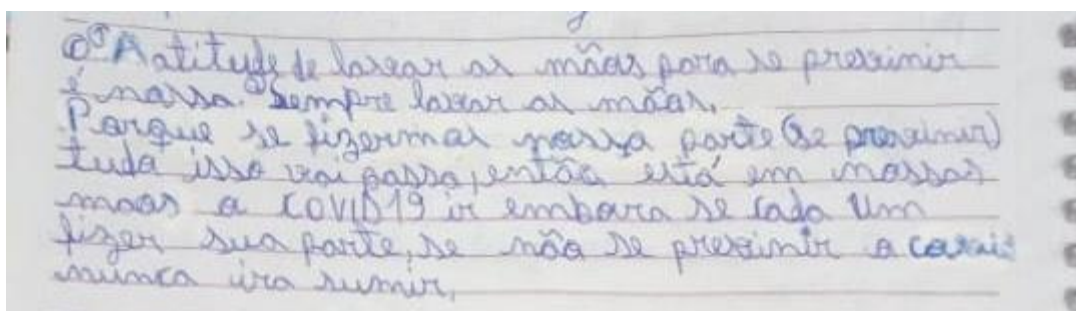 A atitude de lavar as mãos para se previnir
é nossa. Sempre lavar as mãos.
Porque se fizermos nossa parte (se previnir)
tudo isso vai passa, então está em nossas
maos a COVID19 ir embora se cada um
fizer sua parte, se não se previnir a
nunca ira sumir.